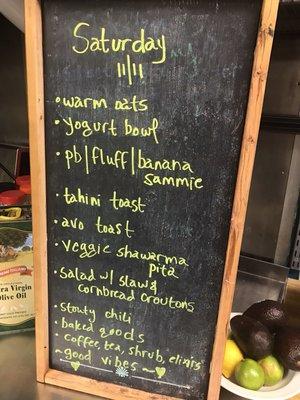 Saturday
11/11
• warm oats
• yogurt bowl
• pb/fluff/banana
sammie
• tahini toast
• avo toast
• veggie shawarma
pita
• salad w/ slaw &
cornbread croutons
• stouty chili
• baked goods
• coffee, tea, shrub, elixirs
~ good vibes ~
Virgin
Olive Oil